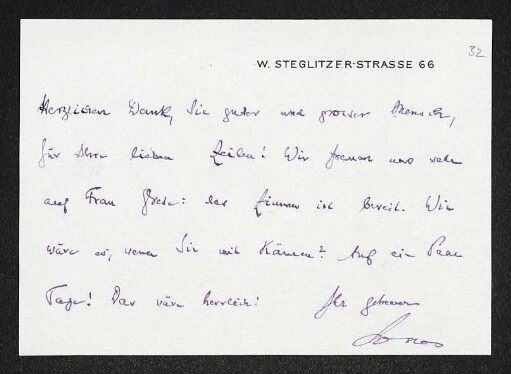 32
W. STEGLITZER-STRASSE 66
Herzlichen Dank, Sie guter und grosser Mensch,
für Ihre lieben Zeilen! Wir freuen uns sehr
auf Frau Grete: das Zimmer ist bereit. Wie
wäre es, wenn Sie mit kämen? Auf ein Paar
Tage! Das wäre herrlich! Ihr getreuer